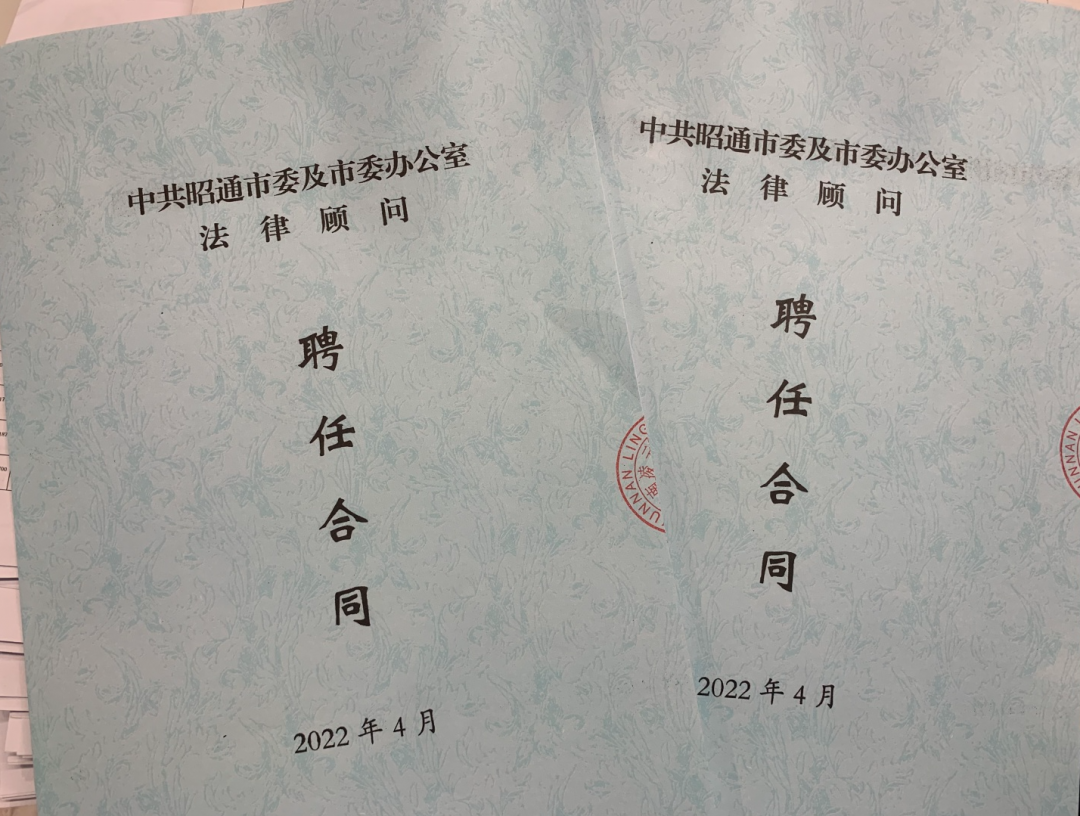 中共昭通市委及市委办公室
法律顾问
聘
任
合
同
2022年4月
UNNAN LING
中共昭通市委及市委办公室
法律顾问
聘
任
合
同
2022年4月